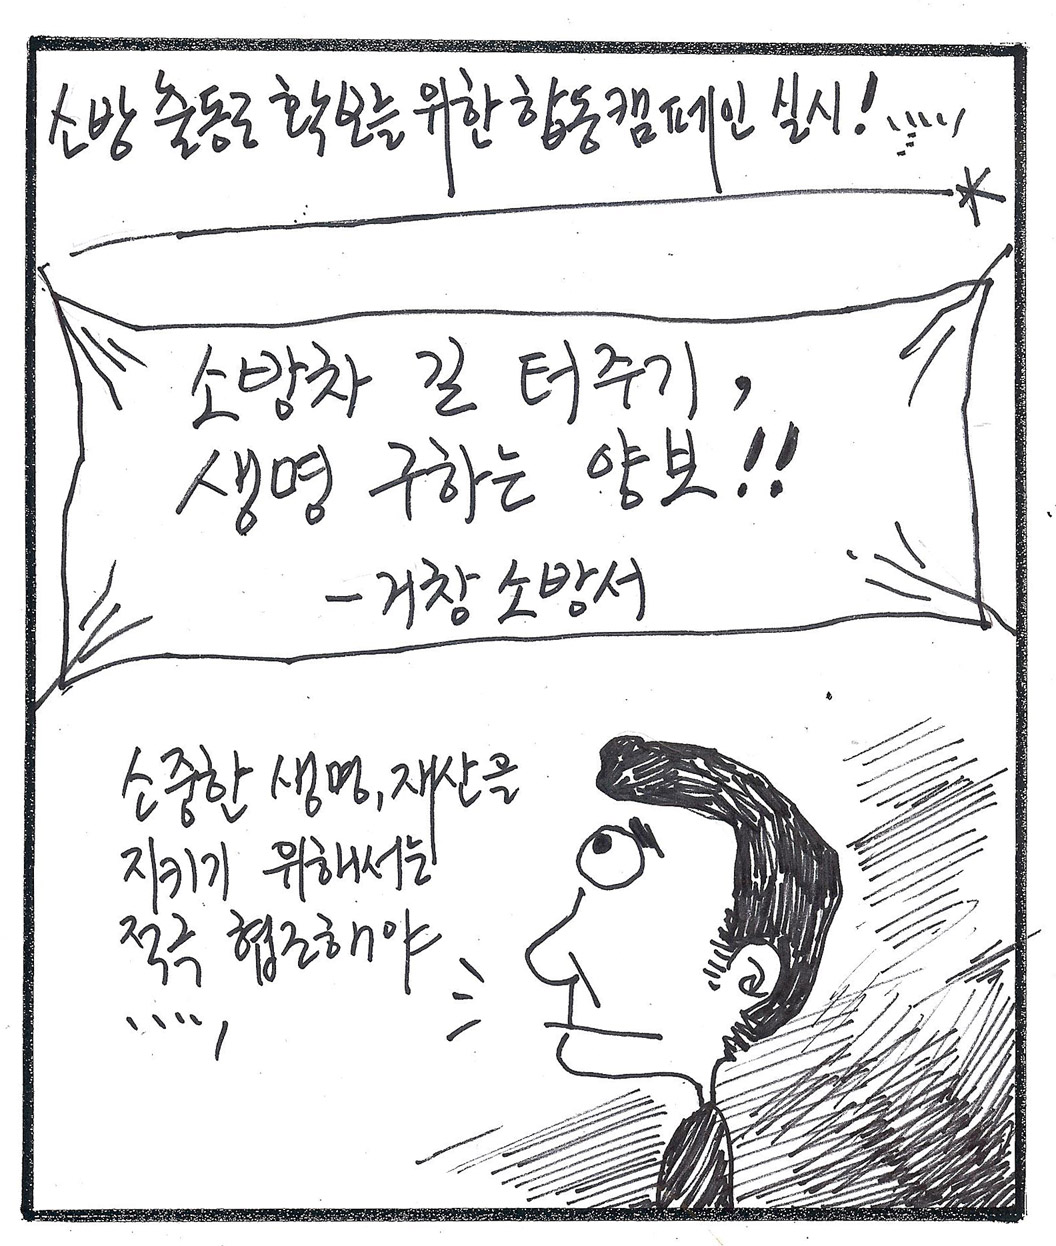 소방 출동로 확보를 위한 합동캠페인 실시!
소방차 길 터주기,
생명 구하는 양보!!
-거창 소방서
소중한 생명, 재산을
지키기 위해서는
적극 협조해야
....,